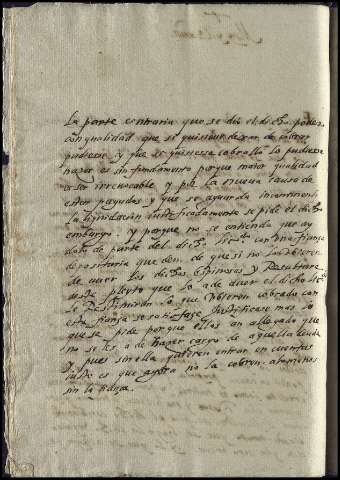 la parte contraria que se dio el dicho poder
con qualidad que si quisiese dexar de cobrar
pudiese y que si quisiesse cobrallo lo pudiesse
hazer es sin fundamento porque maior qualidad
es ser irrevocable y por la nueva causa de
estar pagados y que se aguarda
la liquidacion justificadamente se pide el dicho
embargo. y porque no se entienda que ay
dolo de parte del dicho con una fiança
depositaria que den de que si no
de aver los dichos Espinosas y
deste pleyto lo que a de aver el dicho
le restituiran lo que ubieren cobrado con
esta fiança se satisfaze mas lo
que se pide porque ellos an allegado que
no se les a de hazer cargo de aquella
pues sin ella quieren entrar en cuentas
justo es que agora no la cobren
sin la fiança.